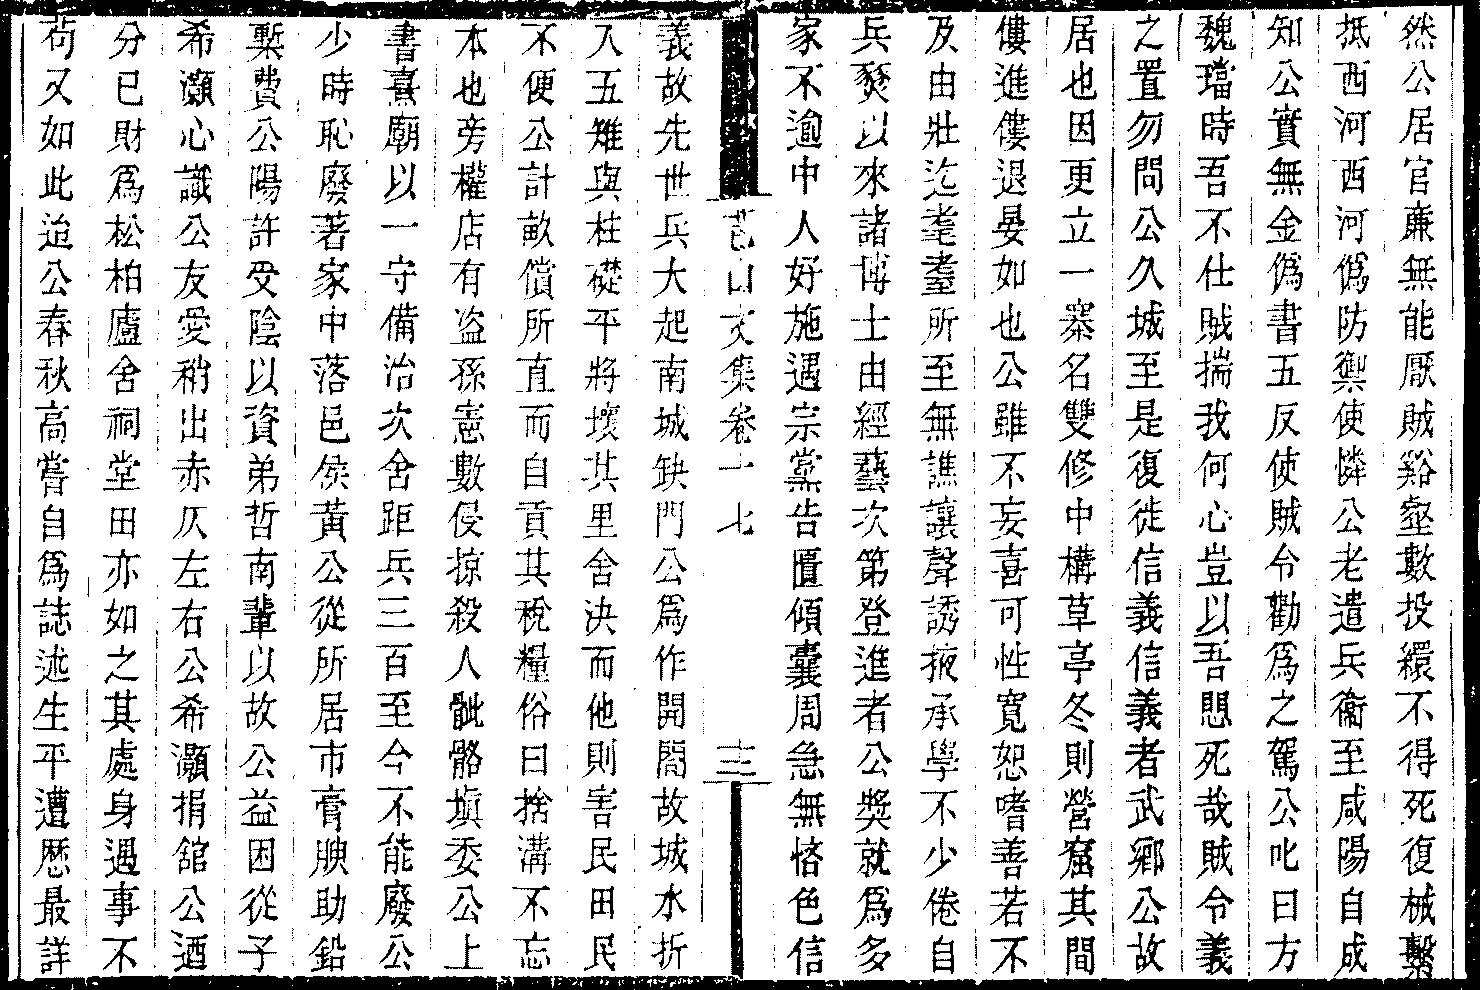 然公居官廉無能厭賊谿壑數投繯不得死復械繫
抵西河西河僞防禦使憐公老遣兵衞至咸陽自成
知公實無金僞書五反使賊令勸爲之駕公叱曰方
魏璫時吾不仕賊揣我何心豈以吾愳死哉賊令義
之置勿問公久城至是復徙信義信義者武鄉公故
居也因更立一寨名雙修中構草亭冬則營窟其間
僂進僂退晏如也公雖不妄喜可性寬恕嗜善若不
及由壯迄耄耋所至無譙讓聲誘掖承學不少倦自
兵燹以來諸博士由經藝次第登進者公獎就爲多
家不逾中人好施遇宗黨告匱傾囊周急無恡色信
文集卷十七
三
義故先世兵大起南城缺門公爲作開閤故城水折
入五雉與柱礎平將壞其里舍決而他則害民田民
不便公計畝償所直而自貢其稅糧俗曰捨溝不忘
本也旁權店有盜孫憲數侵掠殺人骴骼塡委公上
書憙廟以一守備治次舍距兵三百至今不能廢公
少時恥廢著家中落邑侯黃公從所居市膏腴助鉛
槧費公陽許受陰以資弟哲南輩以故公益困從子
希灝心識公友愛稍出赤仄左右公希灝捐舘公酒
分已財爲松柏廬舍祠堂田亦如之其處身遇事不
苟又如此迨公春秋高嘗自爲誌述生平遭歷最詳